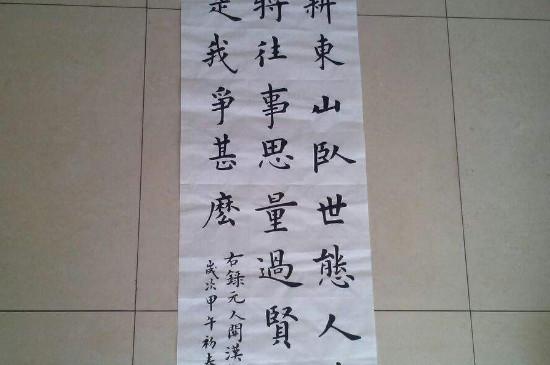 耕東山臥世態人
將往事思量過賢
是我爭甚麼
右錄元人關漢
歲次甲午初春